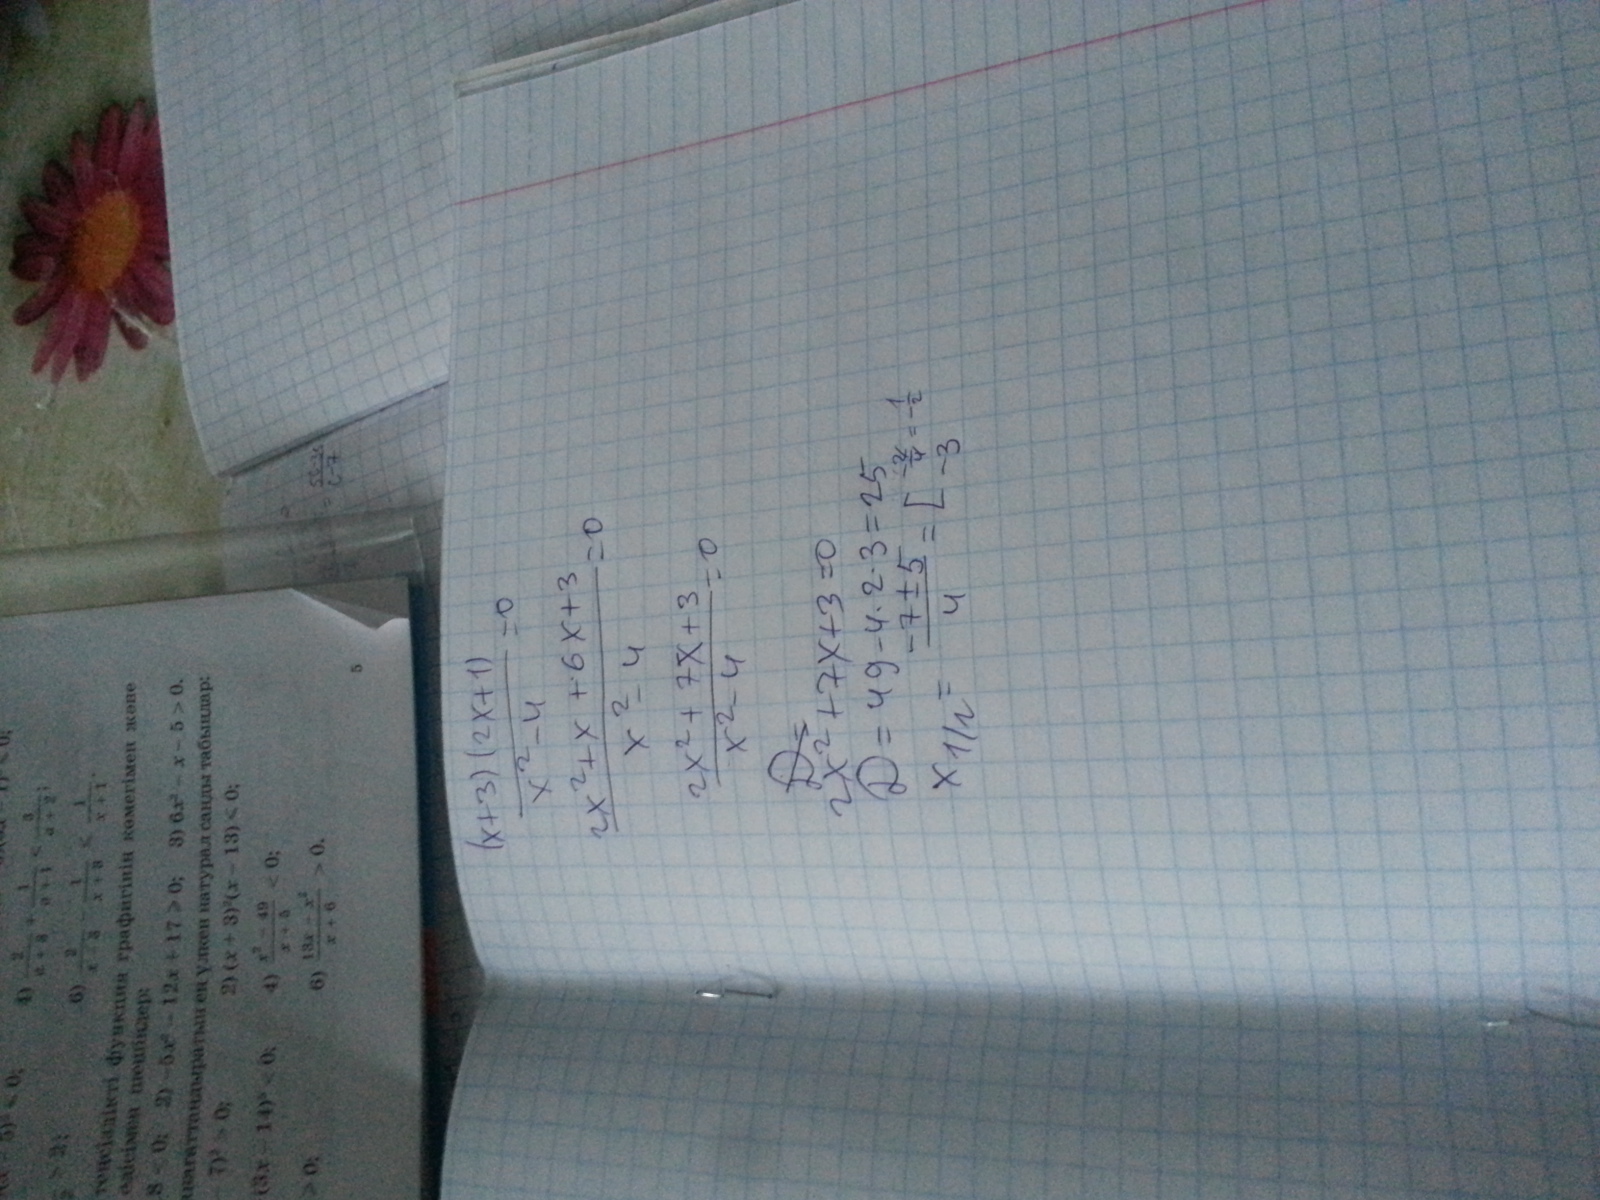 4) 2/(a+3) + 1/(a+1) < 3/(a+2);
6) 2/(x-3) - 1/(x+3) < 1/(x+1).
функция графигінің көмегімен және
әдісімен шешіңдер:
8 < 0; 2) -5x² - 12x + 17 > 0; 3) 6x² - x - 5 > 0.
қанағаттандыратын ең үлкен натурал санды табыңдар:
7)³ > 0; 2) (x + 3)²(x - 13) < 0;
(3x - 14)⁵ < 0; 4) (x² - 49)/(x + 5) < 0;
> 0; 6) (13x - x²)/(x + 6) > 0.
5
(x+3)(2x+1)/(x²-4) = 0
(2x²+x+6x+3)/(x²-4) = 0
(2x²+7x+3)/(x²-4) = 0
D=
2x²+7x+3=0
D=49-4·2·3=25
x1/2 = (-7±5)/4 = [ -2/4 = -1/2
-3